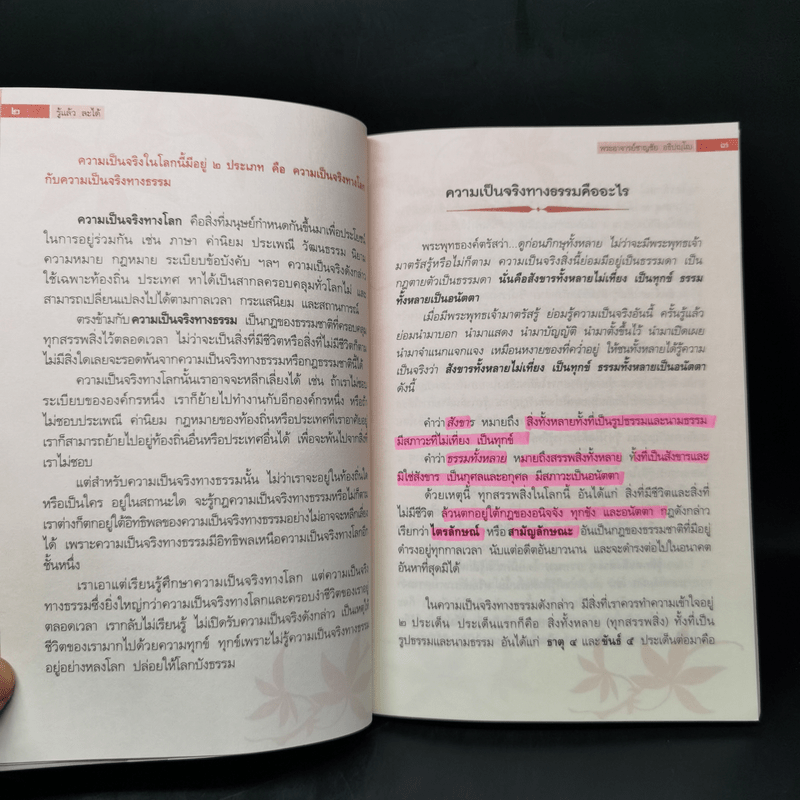 ๒ รู้แล้ว ละได้
ความเป็นจริงในโลกนี้มีอยู่ ๒ ประเภท คือ ความเป็นจริงทางโลก
กับความเป็นจริงทางธรรม
ความเป็นจริงทางโลก คือสิ่งที่มนุษย์กำหนดกันขึ้นมาเพื่อประโยชน์
ในการอยู่ร่วมกัน เช่น ภาษา ค่านิยม ประเพณี วัฒนธรรม นิยาม
ความหมาย กฎหมาย ระเบียบข้อบังคับ ฯลฯ ความเป็นจริงดังกล่าว
ใช้เฉพาะท้องถิ่น ประเทศ หาได้เป็นสากลครอบคลุมทั่วโลกไม่ และ
สามารถเปลี่ยนแปลงไปได้ตามกาลเวลา กระแสนิยม และสถานการณ์
ตรงข้ามกับความเป็นจริงทางธรรม เป็นกฎของธรรมชาติที่ครอบคลุม
ทุกสรรพสิ่งไว้ตลอดเวลา ไม่ว่าจะเป็นสิ่งที่มีชีวิตหรือสิ่งที่ไม่มีชีวิตก็ตาม
ไม่มีสิ่งใดเลยจะรอดพ้นจากความเป็นจริงทางธรรมหรือกฎธรรมชาตินี้ได้
ความเป็นจริงทางโลกนั้นเราอาจจะหลีกเลี่ยงได้ เช่น ถ้าเราไม่ชอบ
ระเบียบขององค์กรหนึ่ง เราก็ย้ายไปทำงานกับอีกองค์กรหนึ่ง หรือถ้า
ไม่ชอบประเพณี ค่านิยม กฎหมายของท้องถิ่นหรือประเทศที่เราอาศัยอยู่
เราก็สามารถย้ายไปอยู่ท้องถิ่นอื่นหรือประเทศอื่นได้ เพื่อจะพ้นไปจากสิ่งที่
เราไม่ชอบ
แต่สำหรับความเป็นจริงทางธรรมนั้น ไม่ว่าเราจะอยู่ในท้องถิ่นใด
หรือเป็นใคร อยู่ในสถานะใด จะรู้กฎความเป็นจริงทางธรรมหรือไม่ก็ตาม
เราต่างก็ตกอยู่ใต้อิทธิพลของความเป็นจริงทางธรรมอย่างไม่อาจจะหลีกเลี่ยง
ได้ เพราะความเป็นจริงทางธรรมมีอิทธิพลเหนือความเป็นจริงทางโลกอีก
ชั้นหนึ่ง
เราเอาแต่เรียนรู้ศึกษาความเป็นจริงทางโลก แต่ความเป็นจริง
ทางธรรมซึ่งยิ่งใหญ่กว่าความเป็นจริงทางโลกและครอบงำชีวิตของเราอยู่
ตลอดเวลา เรากลับไม่เรียนรู้ ไม่เปิดรับความเป็นจริงดังกล่าว เป็นเหตุให้
ชีวิตของเรามากไปด้วยความทุกข์ ทุกข์เพราะไม่รู้ความเป็นจริงทางธรรม
อยู่อย่างหลงโลก ปล่อยให้โลกบังธรรม
พระอาจารย์ชาญชัย อธิปญฺโญ ๓
ความเป็นจริงทางธรรมคืออะไร
พระพุทธองค์ตรัสว่า...ดูก่อนภิกษุทั้งหลาย ไม่ว่าจะมีพระพุทธเจ้า
มาตรัสรู้หรือไม่ก็ตาม ความเป็นจริงสิ่งนี้ย่อมมีอยู่เป็นธรรมดา เป็น
กฎตายตัวเป็นธรรมดา นั่นคือสังขารทั้งหลายไม่เที่ยง เป็นทุกข์ ธรรม
ทั้งหลายเป็นอนัตตา
เมื่อมีพระพุทธเจ้ามาตรัสรู้ ย่อมรู้ความเป็นจริงอันนี้ ครั้นรู้แล้ว
ย่อมนำมาบอก นำมาแสดง นำมาบัญญัติ นำมาตั้งขึ้นไว้ นำมาเปิดเผย
นำมาจำแนกแจกแจง เหมือนหงายของที่คว่ำอยู่ ให้ชนทั้งหลายได้รู้ความ
เป็นจริงว่า สังขารทั้งหลายไม่เที่ยง เป็นทุกข์ ธรรมทั้งหลายเป็นอนัตตา
ดังนี้
คำว่าสังขาร หมายถึง สิ่งทั้งหลายทั้งที่เป็นรูปธรรมและนามธรรม
มีสภาวะที่ไม่เที่ยง เป็นทุกข์
คำว่าธรรมทั้งหลาย หมายถึงสรรพสิ่งทั้งหลาย ทั้งที่เป็นสังขารและ
มิใช่สังขาร เป็นกุศลและอกุศล มีสภาวะเป็นอนัตตา
ด้วยเหตุนี้ ทุกสรรพสิ่งในโลกนี้ อันได้แก่ สิ่งที่มีชีวิตและสิ่งที่
ไม่มีชีวิต ล้วนตกอยู่ใต้กฎของอนิจจัง ทุกขัง และอนัตตา กฎดังกล่าว
เรียกว่าไตรลักษณ์ หรือสามัญลักษณะ อันเป็นกฎของธรรมชาติที่มีอยู่
ดำรงอยู่ทุกกาลเวลา นับแต่อดีตอันยาวนาน และจะดำรงต่อไปในอนาคต
อันหาที่สุดมิได้
ในความเป็นจริงทางธรรมดังกล่าว มีสิ่งที่เราควรทำความเข้าใจอยู่
๒ ประเด็น ประเด็นแรกก็คือ สิ่งทั้งหลาย (ทุกสรรพสิ่ง) ทั้งที่เป็น
รูปธรรมและนามธรรม อันได้แก่ ธาตุ ๔ และขันธ์ ๕ ประเด็นต่อมาคือ